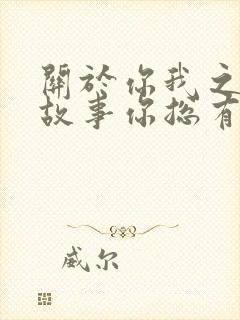 關於你我之
故事你總有
威尔